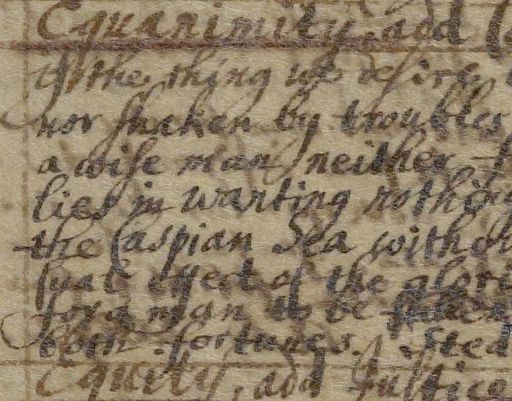 Equanimity, add
is the thing we desire,
nor shaken by troubles
a wise man, neither
lies in wanting nothing
the Caspian Sea witho
of the glori
for a man to be
both fortunes. Sted
Equity, add Justice